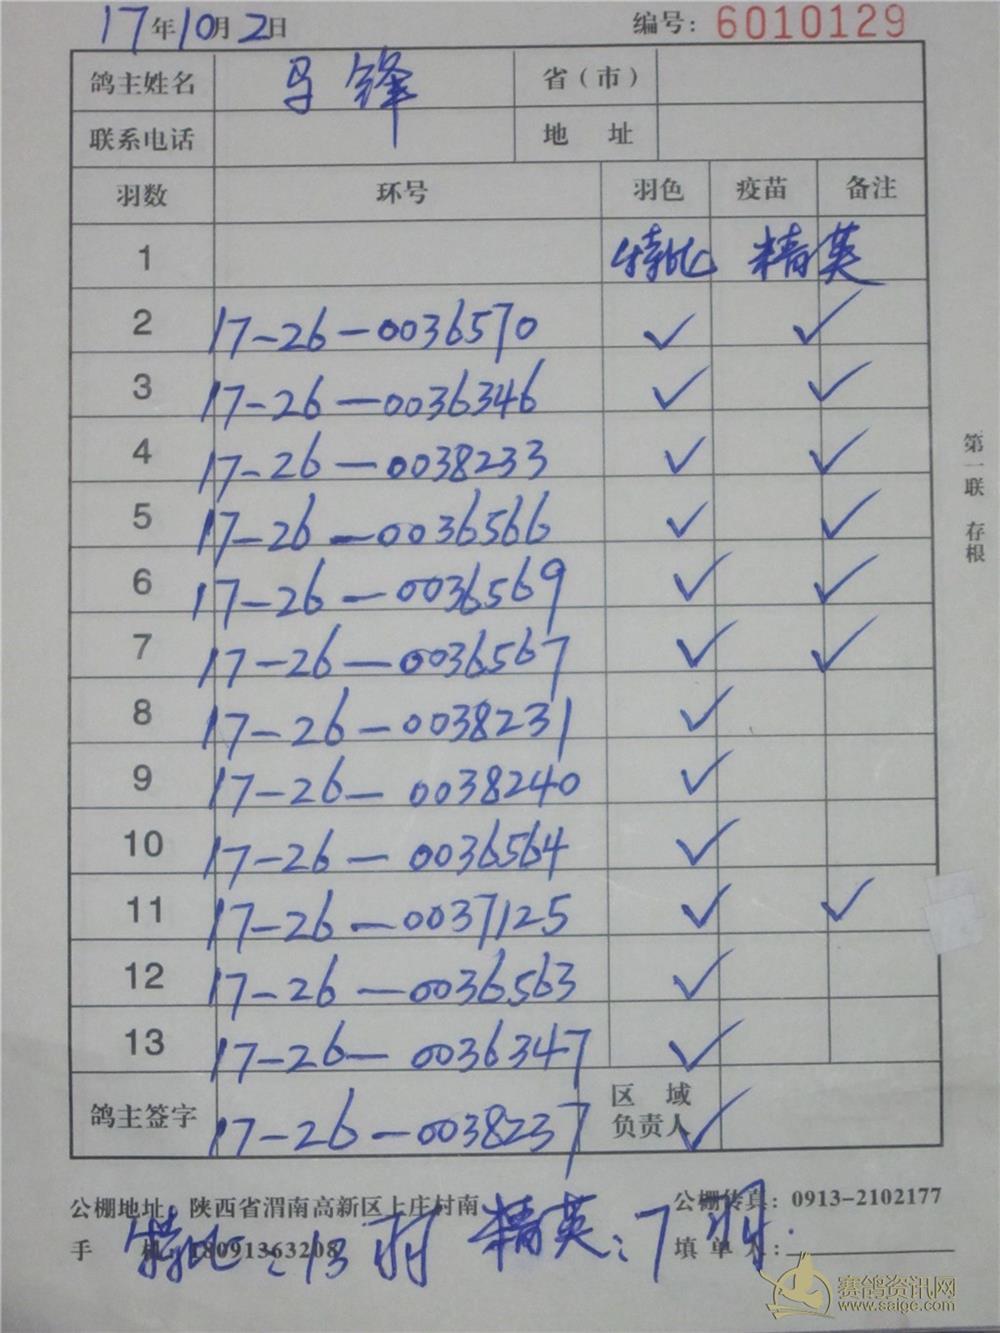 17年10月2日 编号: 6010129
鸽主姓名 马锋 省（市）
联系电话 地 址
羽数 环号 羽色 疫苗 备注
1 特比 精英
2 17-26-0036570 ✓ ✓
3 17-26-0036346 ✓ ✓
4 17-26-0038233 ✓ ✓
5 17-26-0036566 ✓ ✓
6 17-26-0036569 ✓ ✓
7 17-26-0036567 ✓ ✓
8 17-26-0038231 ✓
9 17-26-0038240 ✓
10 17-26-0036564 ✓
11 17-26-0037125 ✓ ✓
12 17-26-0036563 ✓
13 17-26-0036347 ✓
鸽主签字 17-26-0038237 区 域 负责人 ✓
公棚地址: 陕西省渭南高新区上庄村南 公棚传真: 0913-2102177
手 机: 18091363208 填 单 人:
特比:13羽 精英:7羽.
第一联 存根
赛鸽资讯网
www.saige.com